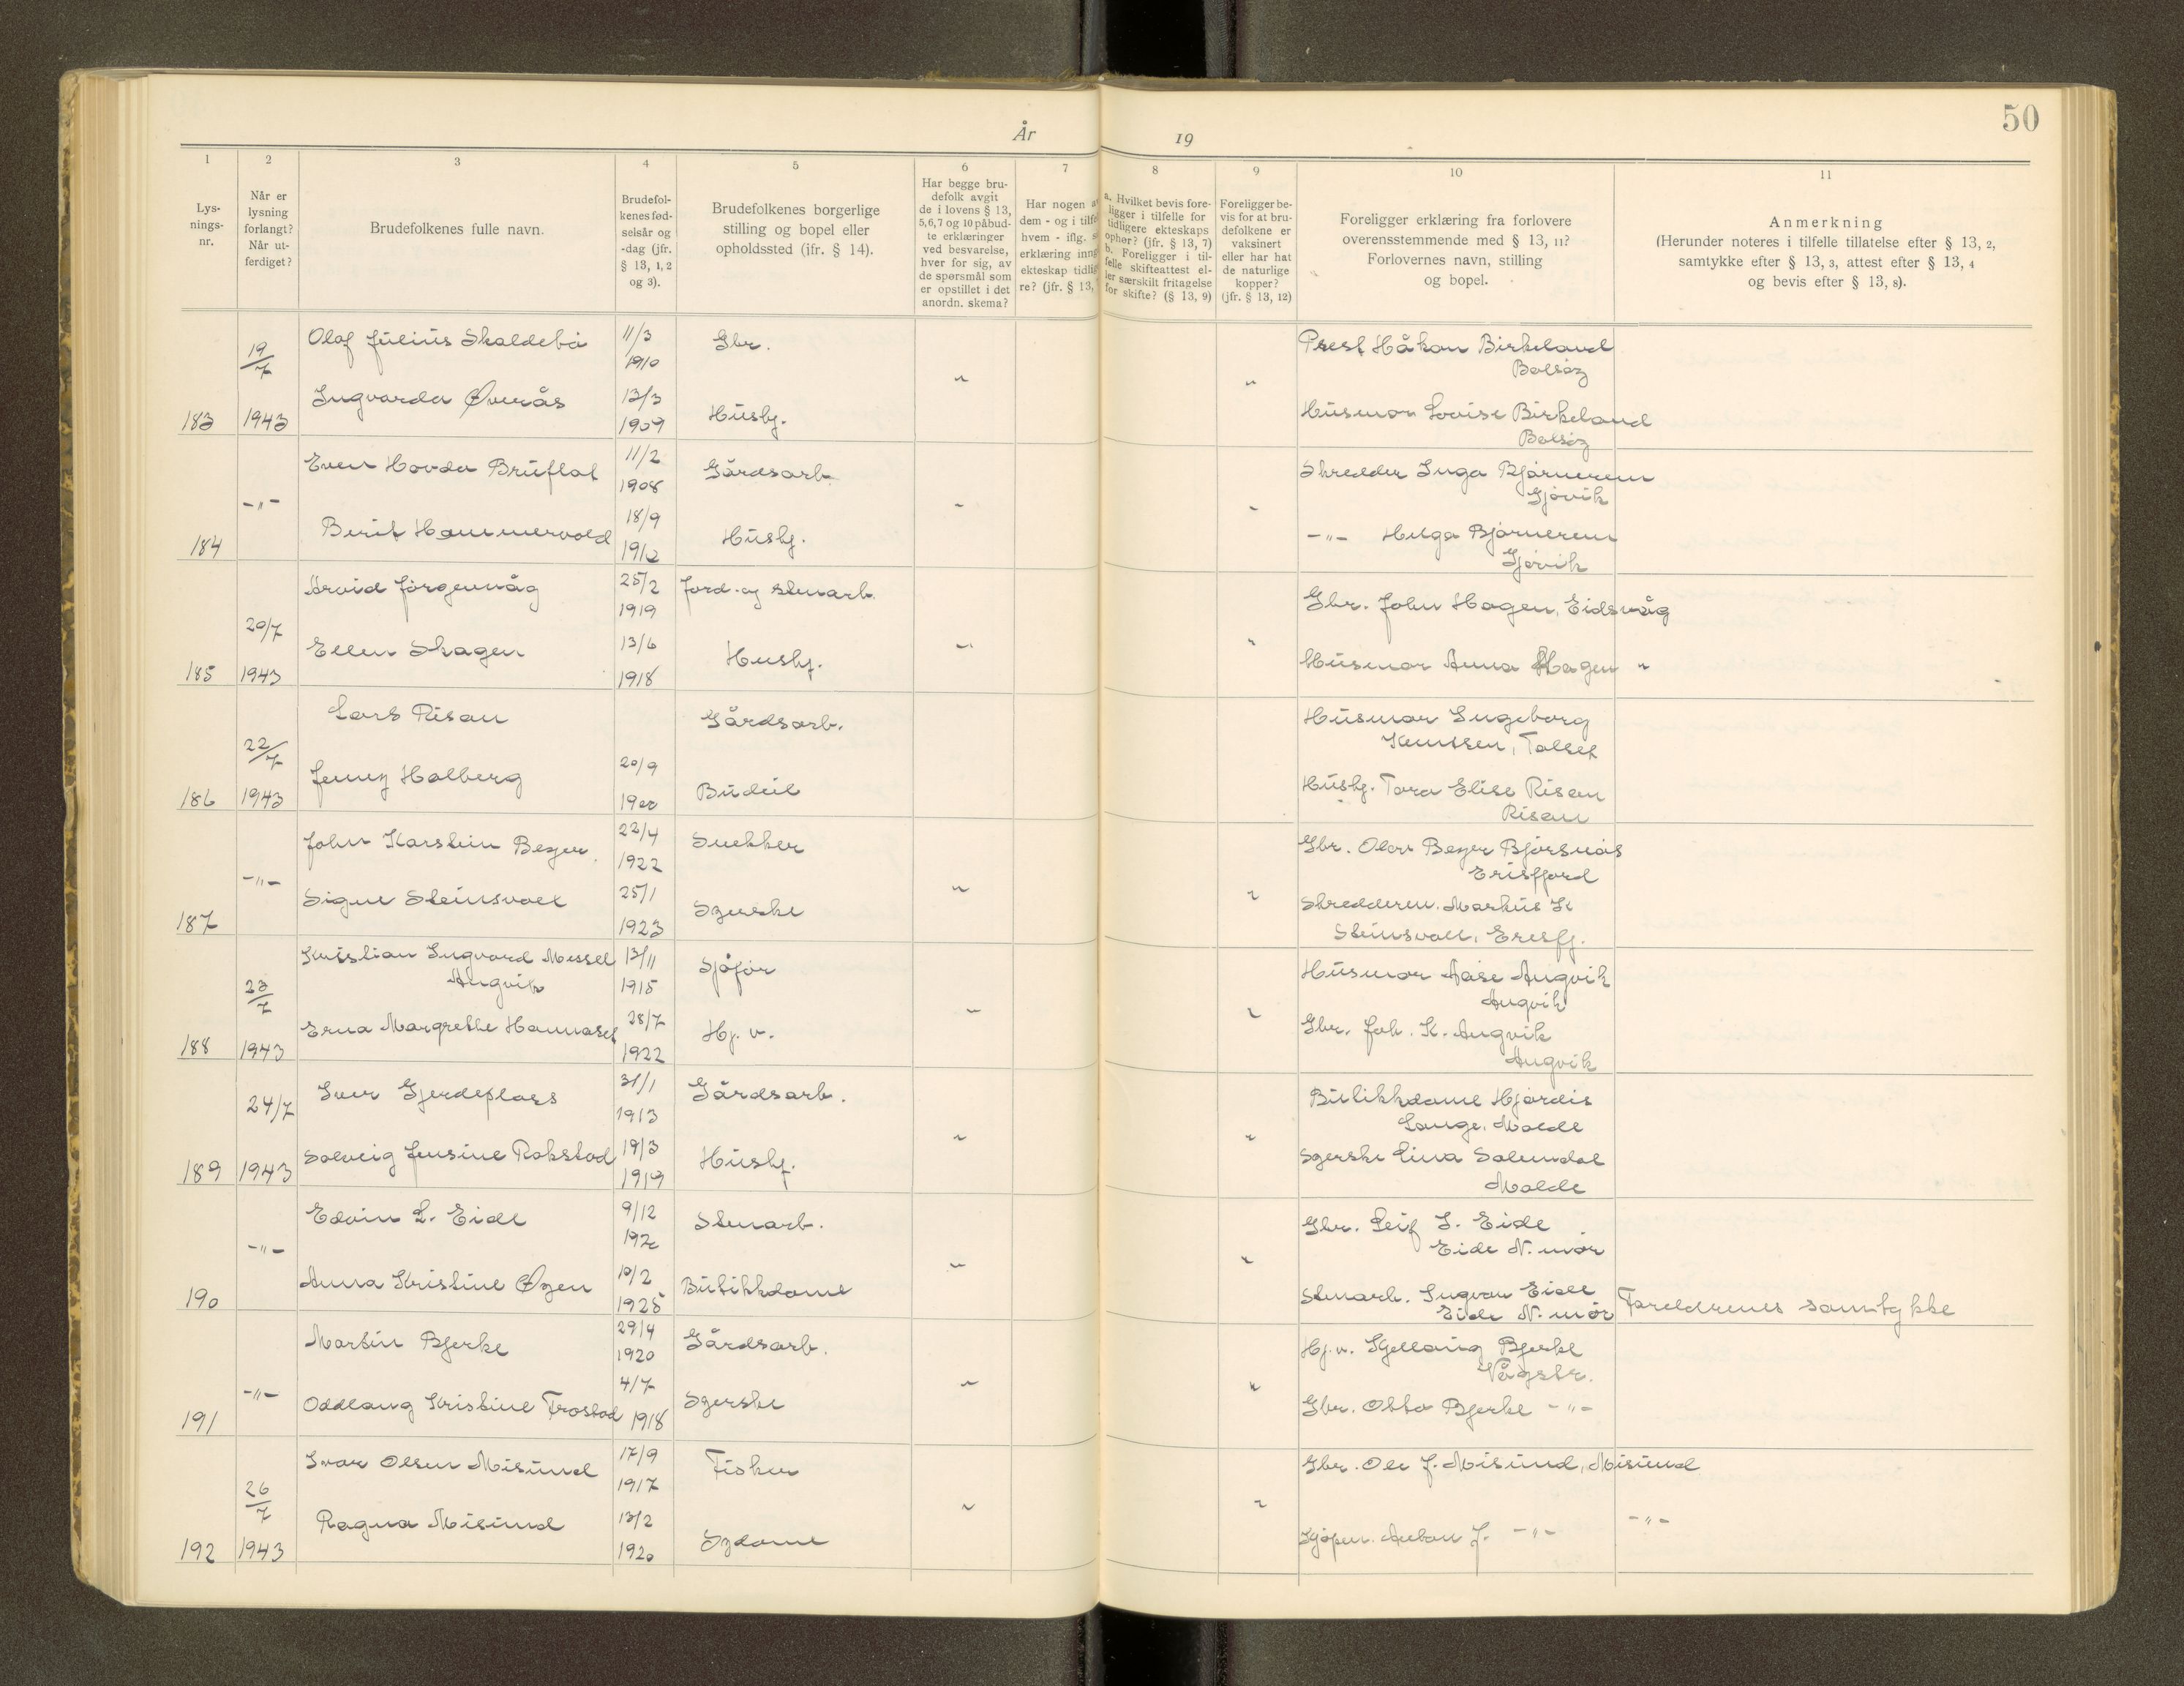 50
År 19
1 2 3 4 5 6 7 8 9 10 11
Lys-
nings-
nr.
Når er
lysning
forlangt?
Når ut-
ferdiget?
Brudefolkenes fulle navn.
Brudefol-
kenes fød-
selsår og
-dag (jfr.
§ 13, 1, 2
og 3).
Brudefolkenes borgerlige
stilling og bopel eller
opholdssted (jfr. § 14).
Har begge bru-
defolk avgit
de i lovens § 13,
5,6,7 og 10 påbud-
te erklæringer
ved besvarelse,
hver for sig, av
de spørsmål som
er opstillet i det
anordn. skema?
Har nogen a
dem - og i tilfe
hvem - iflg. s
erklæring inng
ekteskap tidlig
re? (jfr. § 13,
a. Hvilket bevis fore-
ligger i tilfelle for
tidligere ekteskaps
ophør? (jfr. § 13, 7)
b. Foreligger i til-
felle skifteattest el-
ler særskilt fritagelse
for skifte? (§ 13, 9)
Foreligger be-
vis for at bru-
defolkene er
vaksinert
eller har hat
de naturlige
kopper?
(jfr. § 13, 12)
Foreligger erklæring fra forlovere
overensstemmende med § 13, 11?
Forlovernes navn, stilling
og bopel.
Anmerkning
(Herunder noteres i tilfelle tillatelse efter § 13, 2,
samtykke efter § 13, 3, attest efter § 13, 4
og bevis efter § 13, 8).
Olaf Julius Skaldebø 11/3 Gbr. Prest Håkon Birkeland
19/7 1910 Bolsøy
Ingvarda Øverås 13/3 " "
183 1943 1909 Husbg. Husmor Lovise Birkeland
Bolsøy
Even Hovda Bruflat 11/2 Gårdsarb. Skredder Inga Bjørnerem
-"- 1908 " " Gjøvik
Berit Hammervold 18/9 Husbj. -"- Helga Bjørnerem
184 1912 Gjøvik
Arvid Jørgenvåg 25/2 Jord- og stenarb.
20/7 1919 Gbr. John Hagen, Eidsvåg
Ellen Skagen 13/6 Husbj. " "
185 1943 1918 Husmor Anna Hagen "
Lars Risan Gårdsarb. Husmor Ingeborg
22/7 Knutsen, Talset
Jenny Halberg 20/9 Budeie Husbj. Tora Elise Risan
186 1943 Risan
John Karstein Beyer 22/4 Snekker Gbr. Olav Beyer Bjørsnøs
-"- 1922 Erisfjord
Signe Steinsvoll 25/1 Syerske " " Skredderm. Markus K
187 1923 Steinsvoll, Eresfj.
Kristian Ingvard Messel 13/11 Sjåfør Husmor Aase Angvik
Angvik 1915 Angvik
23/7
Erna Margrethe Hannaset 28/7 Hj. v. " " Gbr. Joh. K. Angvik
188 1943 1922 Angvik
Iver Gjerdeplass 31/1 Gårdsarb. Butikkdame Hjørdis
24/7 1913 Lange, Molde
Solveig Jensine Rakstad 19/3 Husbj. " " Syerske Lina Solemdal
189 1943 1919 Molde
Edvin L. Eide 9/12 Stenarb. Gbr. Leif L. Eide
-"- Eide N. mør
Anna Kristine Øyen 10/2 Butikkdame " " Stenarb. Ingvar Eide
190 1925 Eide N. mør Foreldrenes samtykke
Martin Bjerke 29/4 Gårdsarb. Hj. v. Kjellaug Bjerke
-"- 1920 Vågstr.
Oddlaug Kristine Frostad 4/7 Syerske " " Gbr. Otto Bjerke -"-
191 1918
Ivar Olsen Misund 17/9 Fisker Gbr. Ole J. Misund, Misund
26/7 1917
Ragna Misund 13/2 Sydame " " Kjøpm. Anton J. -"- -"-
192 1943 1920